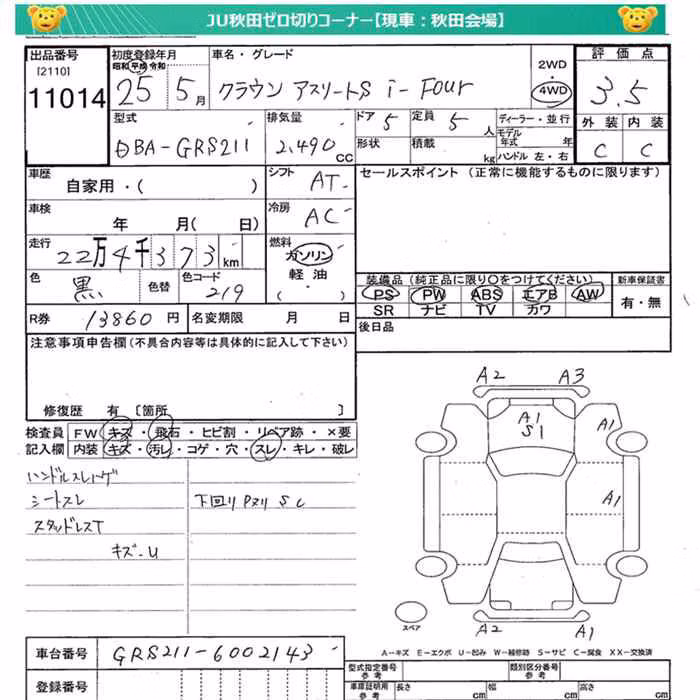 JU秋田ゼロ切りコーナー【現車：秋田会場】
出品番号 [2110] 11014
初度登録年月 昭和 平成 令和 25 5月
車名・グレード クラウン アスリートS i-Four
2WD 4WD
評価点 3.5
外装 内装 C C
型式 DBA-GRS211
排気量 2,490 CC
ドア 5 定員 5 人
形状 積載 kg
ディーラー・並行
モデル年式 年
ハンドル 左・右
車歴 自家用・( )
シフト AT
セールスポイント（正常に機能するものに限ります）
車検 年 月( 日)
冷房 AC
走行 22万4千373km
燃料 ガソリン 軽油・( )
色 黒 色替 色コード 219
装備品（純正品に限り〇をつけてください） 新車保証書
PS PW ABS エアB AW 有・無
SR ナビ TV カワ
R券 13860円 名変期限 月 日
後日品
注意事項申告欄（不具合内容等は具体的に記入して下さい）
修復歴 有 〔箇所 〕
検査員記入欄
FW キズ・飛石・ヒビ割・リペア跡・×要
内装 キズ・汚レ・コゲ・穴・スレ・キレ・破レ
ハンドルスレハゲ
シートスレ 下回りPヌリ SC
スタッドレスT
キズ-U
A2 A3
A1 S1 A1
A1
スペア
A2 A1
A-キズ E-エクボ U-凹み W-補修跡 S-サビ C-腐食 XX-交換済
車台番号 GRS211-6002143
型式指定番号 参考 類別区分番号 参考
登録番号
車庫証明用 参考 長さ cm 幅 cm 高さ cm